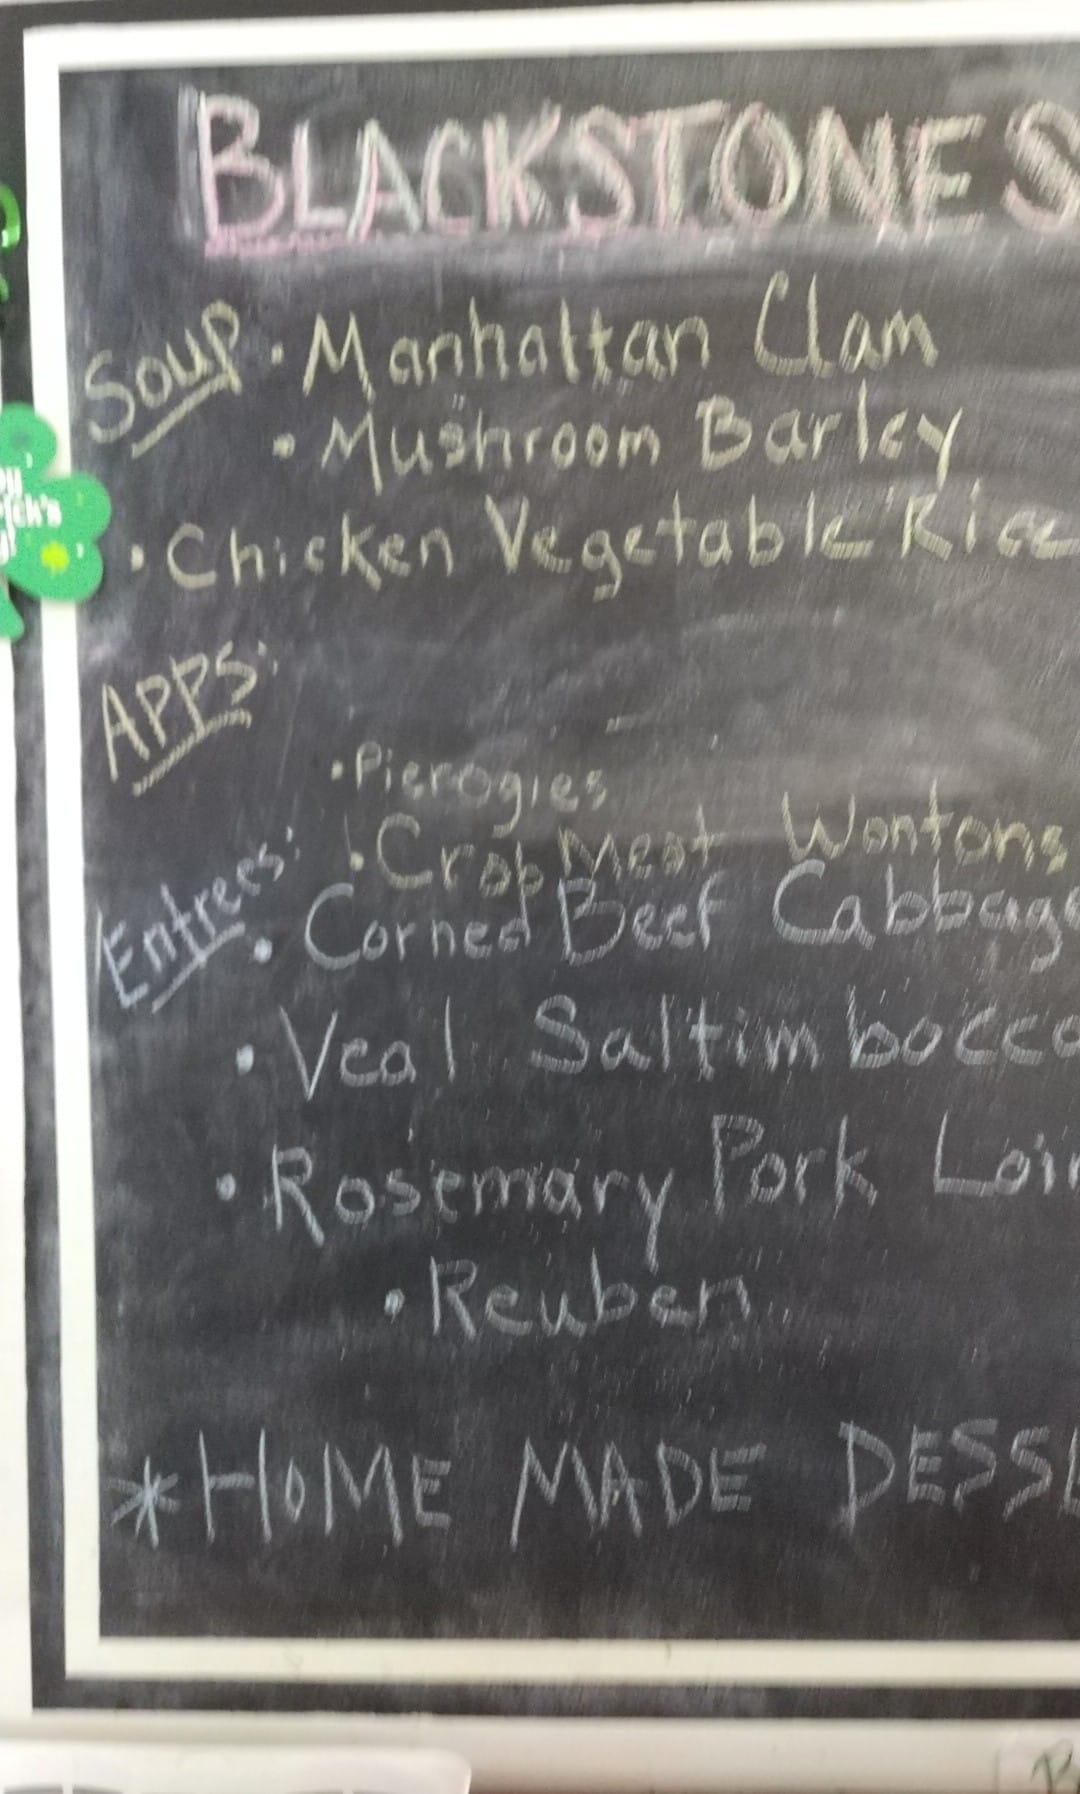 BLACKSTONES
Soup • Manhattan Clam
• Mushroom Barley
• Chicken Vegetable Rice
APPS:
• Pierogies
• Crab Meat Wontons
Entrees: • Corned Beef Cabbage
• Veal Saltimbocca
• Rosemary Pork Loin
• Reuben
* HOME MADE DESSE